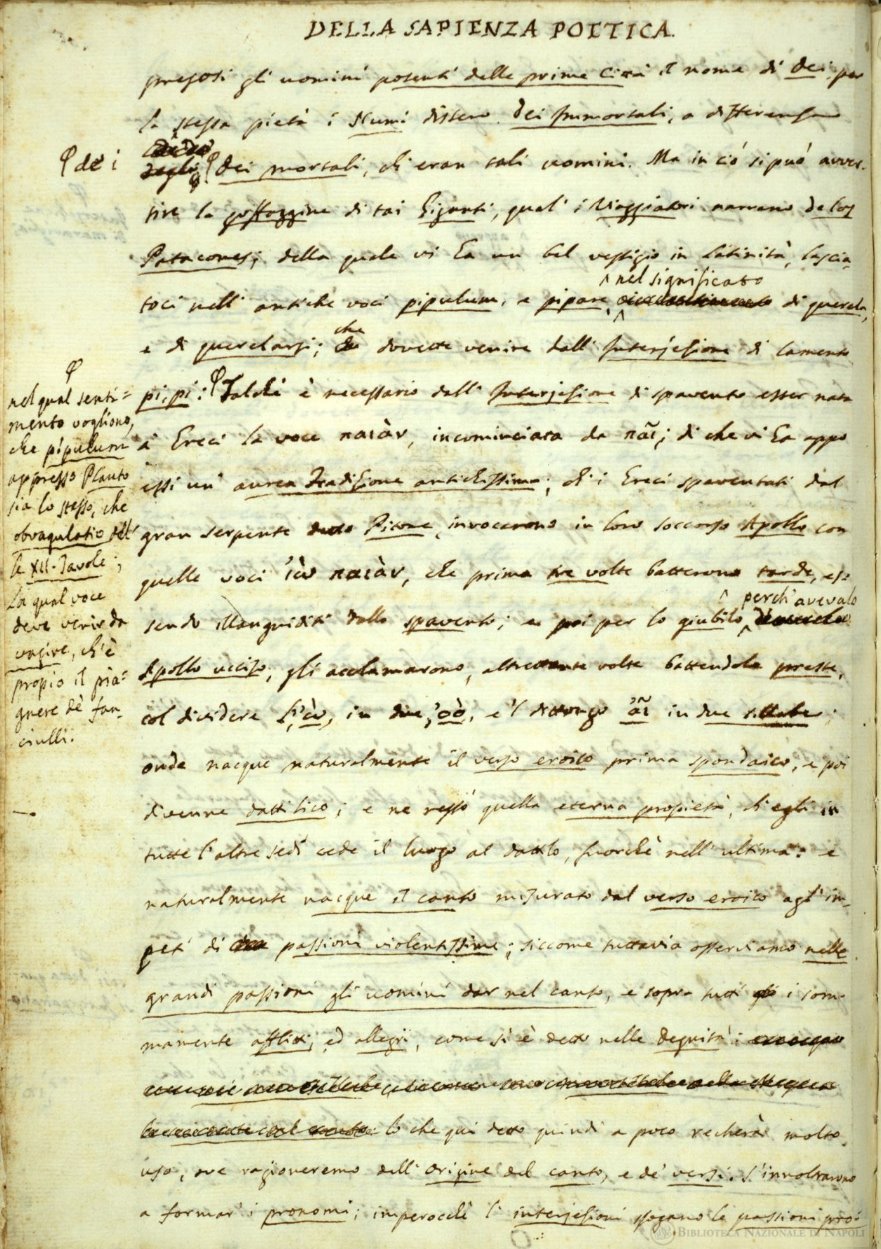 DELLA SAPIENZA POETICA.
presosi gli uomini potenti delle prime Città il nome di Dei, per
la stessa pietà i Numi dissero Dei Immortali, a differenza
φ de i
degli φ Dei mortali, ch'eran tali uomini. Ma in ciò si può avver-
tire la goffaggine di tai Giganti, qual' i Viaggiatori narrano de los
Patacones; della quale vi ha un bel vestigio in Latinità, lascia-
nel significato
toci nell' antiche voci pipulum, e pipare di querela,
che
e di querelarsi; dovette venire dall' Interjezione di lamento
pi, pi: φ Talchè è necessario dall' Interjezione di spavento esser nata
a' Greci la voce παιὰν, incominciata da παῖ; di che vi ha appo
essi un' aurea Tradizione antichissima, ch'i Greci spaventati dal
gran serpente detto Pitone, invocarono in loro soccorso Apollo con
quelle voci ἰὼ παιὰν, che prima tre volte batterono tarde, es-
perch'avevalo
sendo illanguiditi dallo spavento; e poi per lo giubilo,
Apollo ucciso, gli acclamarono, altrettante volte battendola preste,
col dividere l'ὼ, in due, ὸὸ, e 'l dittongo αῖ in due sillabe;
onde nacque naturalmente il verso eroico prima spondaico, e poi
divenne dattilico; e ne restò quella eterna propietà, ch'egli in
tutte l'altre sedi cede il luogo al dattilo, fuorchè nell' ultima: e
naturalmente nacque il canto misurato dal verso eroico agl' im-
peti di passioni violentissime; siccome tuttavia osserviamo nelle
grandi passioni gli uomini dar nel canto, e sopra tutti i som-
mamente afflitti, ed allegri, come si è detto nelle Degnità:
lo che qui detto quindi a poco recherà molto
uso, ove ragioneremo dell' Origine del canto, e de' versi. S'innoltrarono
a formar' i pronomi; imperocchè l' interjezioni sfogano le passioni pro-
φ
nel qual senti=
mento vogliono,
che pipulum
appresso Plauto
sia lo stesso, che
obvagulatio del-
le XII. Tavole;
la qual voce
deve venir da
vagire, ch'è
propio il pia=
gnere de' fan-
ciulli.
BIBLIOTECA NAZIONALE DI NAPOLI